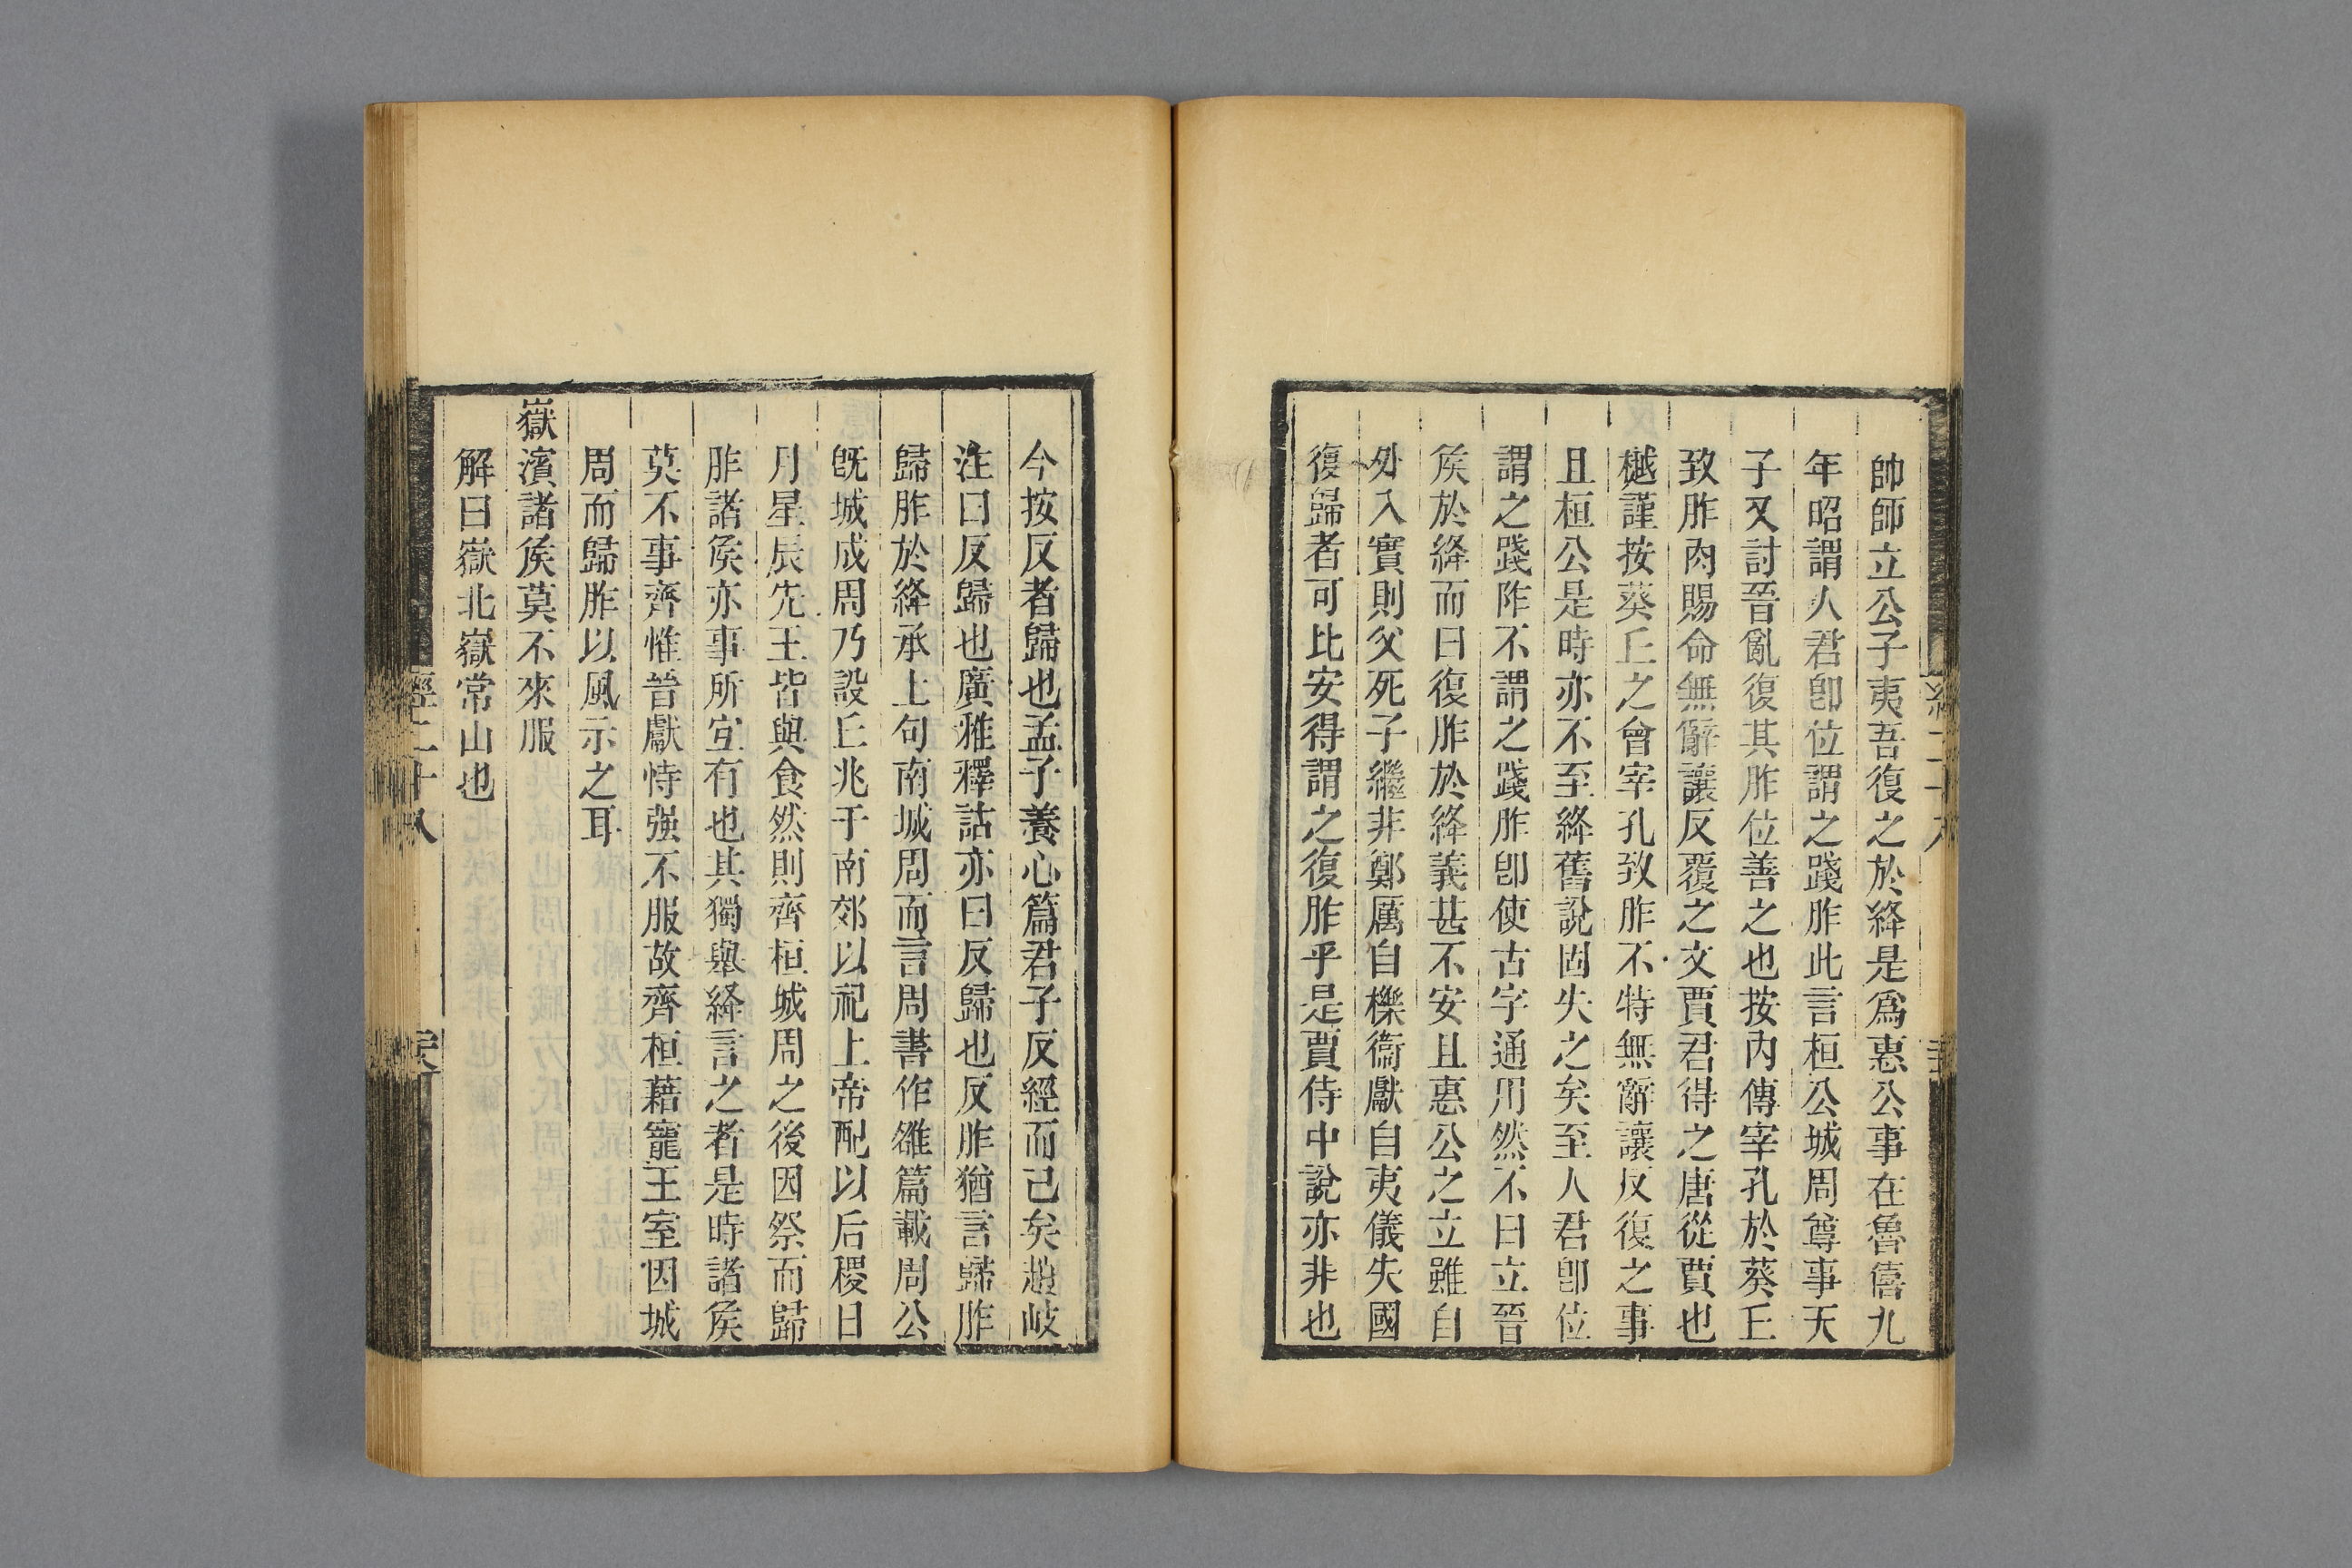 帥師立公子夷吾復之於絳是爲惠公事在魯僖九
年昭謂人君卽位謂之踐胙此言桓公城周尊事天
子又討晉亂復其胙位善之也按內傳宰孔於葵丘
致胙肉賜命無辭讓反覆之文賈君得之唐從賈也
樾謹按葵丘之會宰孔致胙不特無辭讓反復之事
且桓公是時亦不至絳舊說固失之矣至人君卽位
謂之踐阼不謂之踐胙卽使古字通用然不曰立晉
侯於絳而曰復胙於絳義甚不安且惠公之立雖自
外入實則父死子繼非鄭厲自櫟衞獻自夷儀失國
復歸者可比安得謂之復胙乎是賈侍中說亦非也
今按反者歸也孟子養心篇君子反經而己矣趙岐
注曰反歸也廣雅釋詁亦曰反歸也反胙猶言歸胙
歸胙於絳承上句南城周而言周書作雒篇載周公
旣城成周乃設丘兆于南郊以祀上帝配以后稷日
月星辰先王皆與食然則齊桓城周之後因祭而歸
胙諸侯亦事所宜有也其獨舉絳言之者是時諸侯
莫不事齊惟晉獻恃强不服故齊桓藉寵王室因城
周而歸胙以風示之耳
嶽濱諸侯莫不來服
解曰嶽北嶽常山也
經二十八